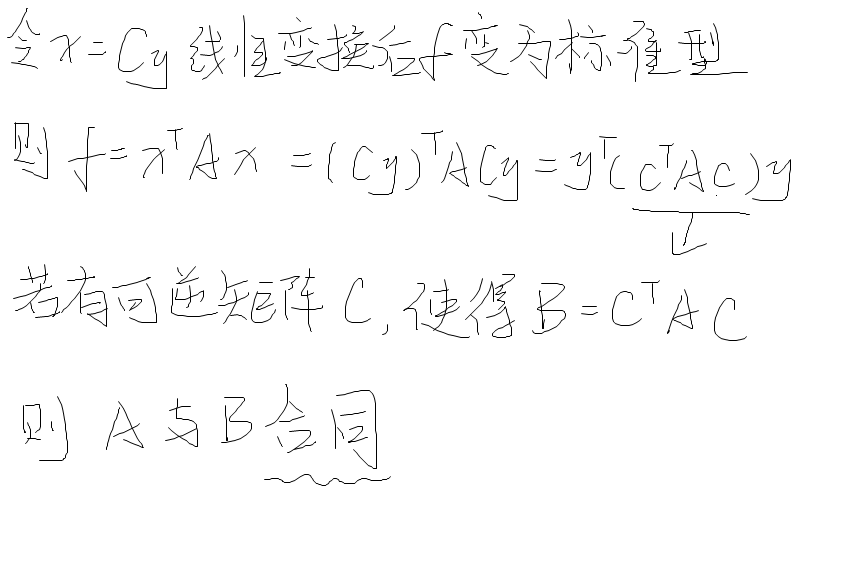 令x=Cy线性变换后f变为标准型
则 f=xᵀAx =(Cy)ᵀACy=yᵀ(CᵀAC)y
若有可逆矩阵C,使得B=CᵀAC
则 A与B合同